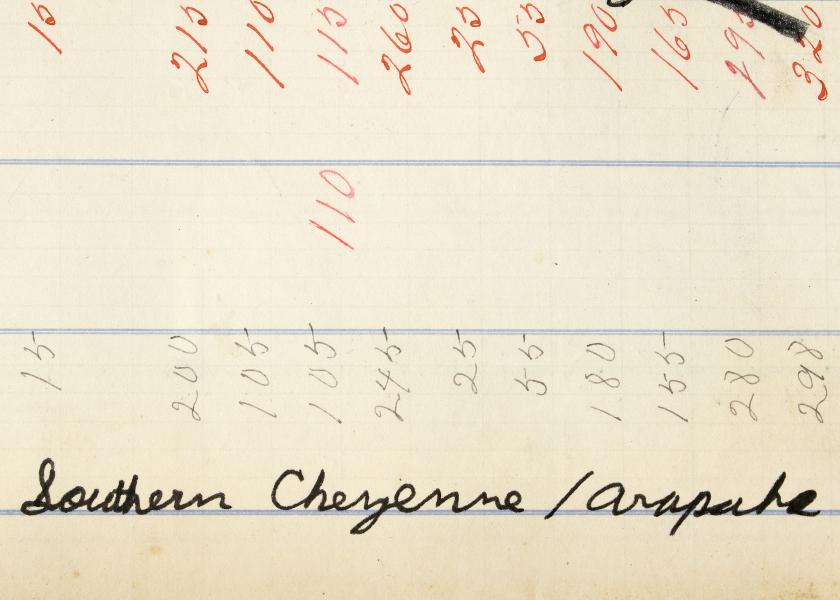 15 215 110 115 260 25 55 190 165 295 320
110
15 200 105 105 245 25 55 180 155 280 298
Southern Cheyenne / Arapaho